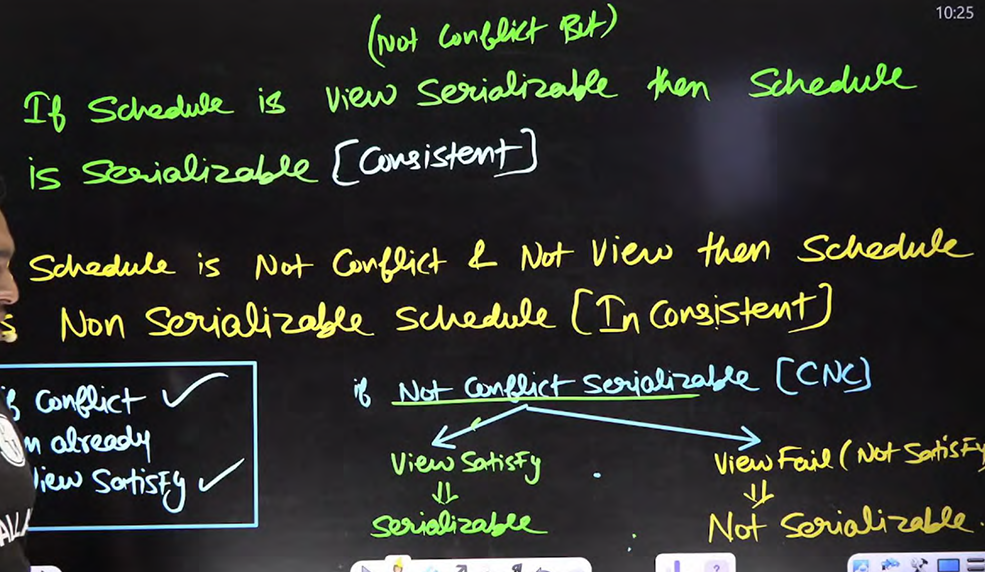 10:25
(Not Conflict But)
If Schedule is View Serializable then Schedule
is Serializable [Consistent]
Schedule is Not Conflict & Not View then Schedule
Non Serializable Schedule [InConsistent]
Conflict ✓
already
View Satisfy ✓
if Not Conflict Serializable [CNC]
View Satisfy
View Fail (Not Satisfy
⇓
⇓
Serializable
Not Serializable.